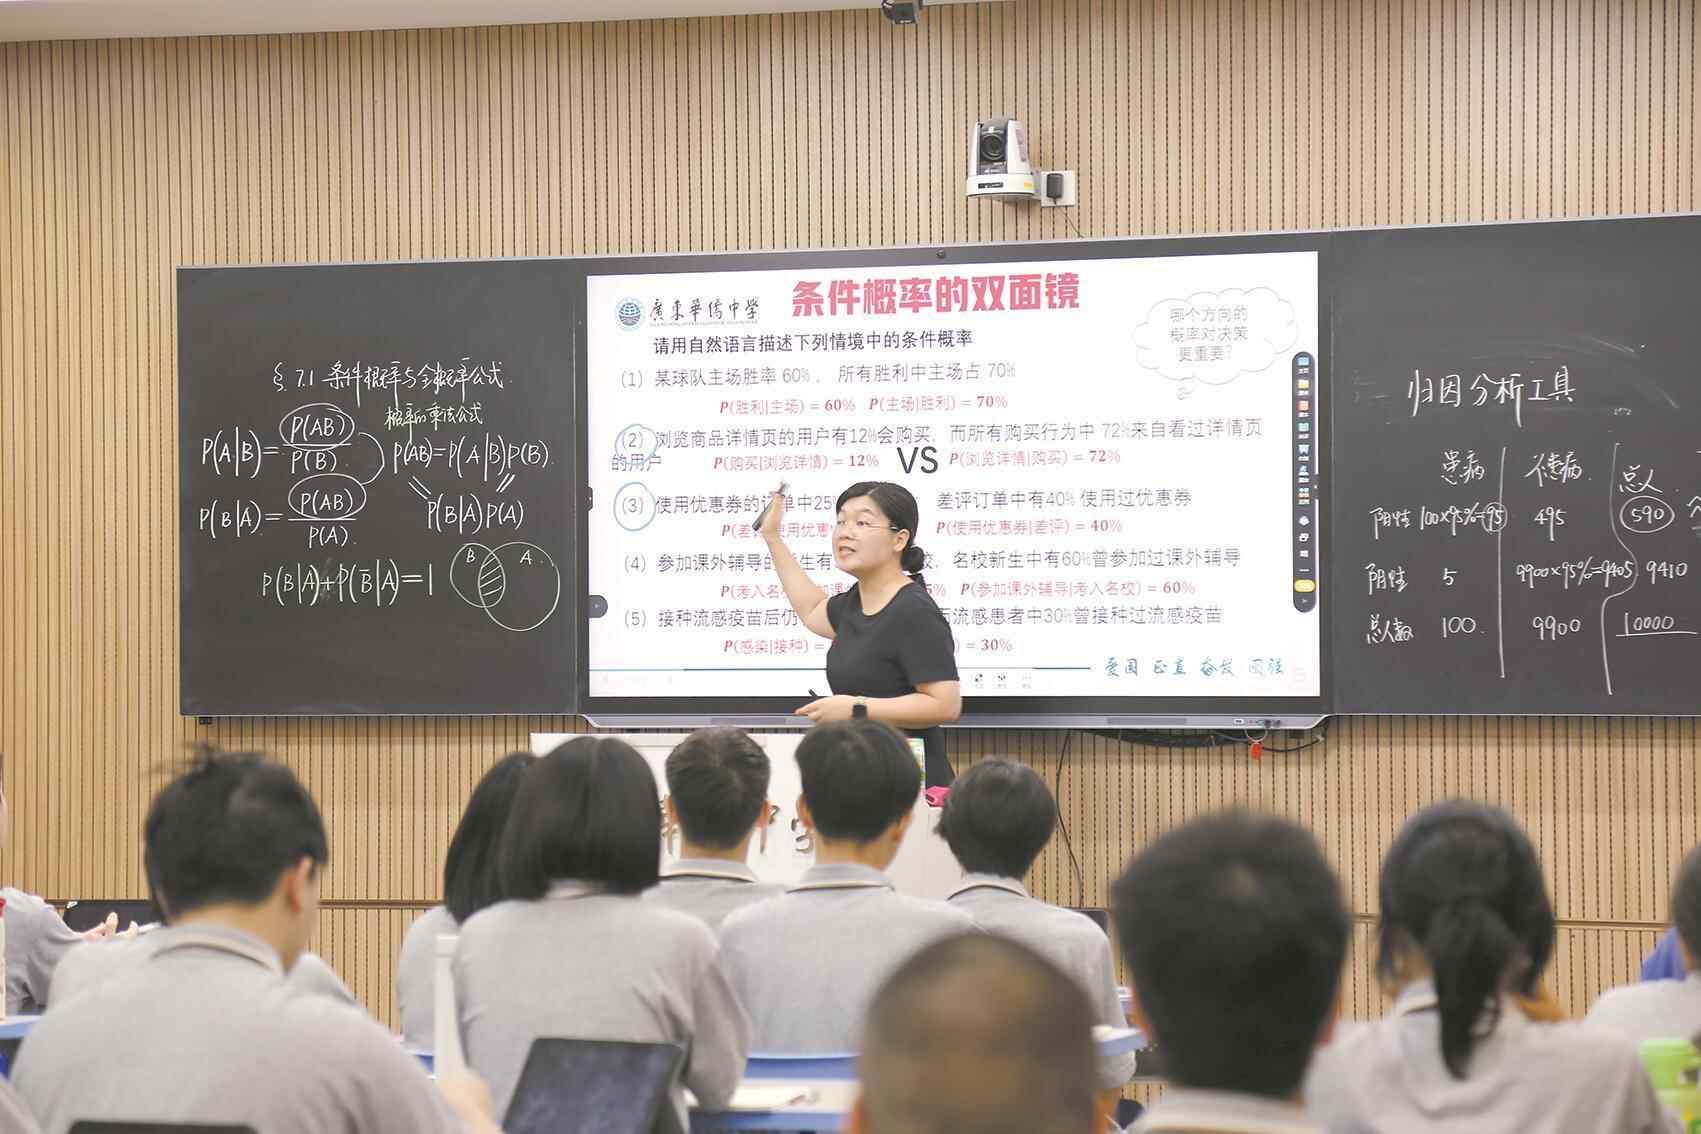 §7.1 条件概率与全概率公式
概率的乘法公式
P(A|B)=P(AB)/P(B) P(AB)=P(A|B)P(B)
P(B|A)=P(AB)/P(A) P(B|A)P(A)
P(B|A)+P(B̄|A)=1
B A
廣東華僑中学
条件概率的双面镜
哪个方向的
概率对决策
更重要?
请用自然语言描述下列情境中的条件概率
(1) 某球队主场胜率 60%, 所有胜利中主场占 70%
P(胜利|主场) = 60% P(主场|胜利) = 70%
(2) 浏览商品详情页的用户有12%会购买, 而所有购买行为中 72%来自看过详情页
的用户 P(购买|浏览详情) = 12% VS P(浏览详情|购买) = 72%
(3) 使用优惠券的订单中25% 差评订单中有40% 使用过优惠券
P(差 使用优惠 P(使用优惠券|差评) = 40%
(4) 参加课外辅导的 生有 校, 名校新生中有60%曾参加过课外辅导
P(考入名校 5% P(参加课外辅导|考入名校) = 60%
(5) 接种流感疫苗后仍 流感患者中30%曾接种过流感疫苗
P(感染|接种) = ) = 30%
爱国 正直 奋发 图强
归因分析工具
患病 不患病 总人
阳性 100×95%=95 495 590
阴性 5 9900×95%=9405 9410
总人数 100 9900 10000